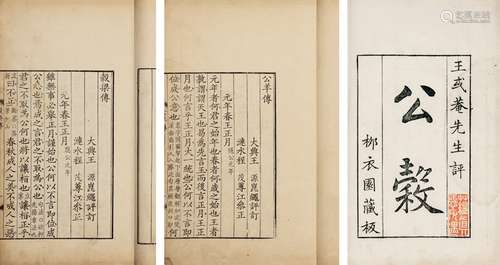 王或菴先生評
公榖
柳衣園藏板
公羊傳
大興王源崑繩評訂
漣水程茂蓴江參正
元年春王正月
元年者何君之始年也春者何歲之始也王者
孰謂謂文王也曷為先言王而後言正月王正
月也何言乎王正月大一統也公何以不言即
位成公意也
穀梁傳
大興王源崑繩評訂
漣水程茂蓴江參正
元年春王正月
雖無事必舉正月謹始也公何以不言即位成
公志也焉成之言君之不取為公也
君之不取為公何也將以讓桓也讓桓正乎
曰不正
春秋成人之美不成人之惡